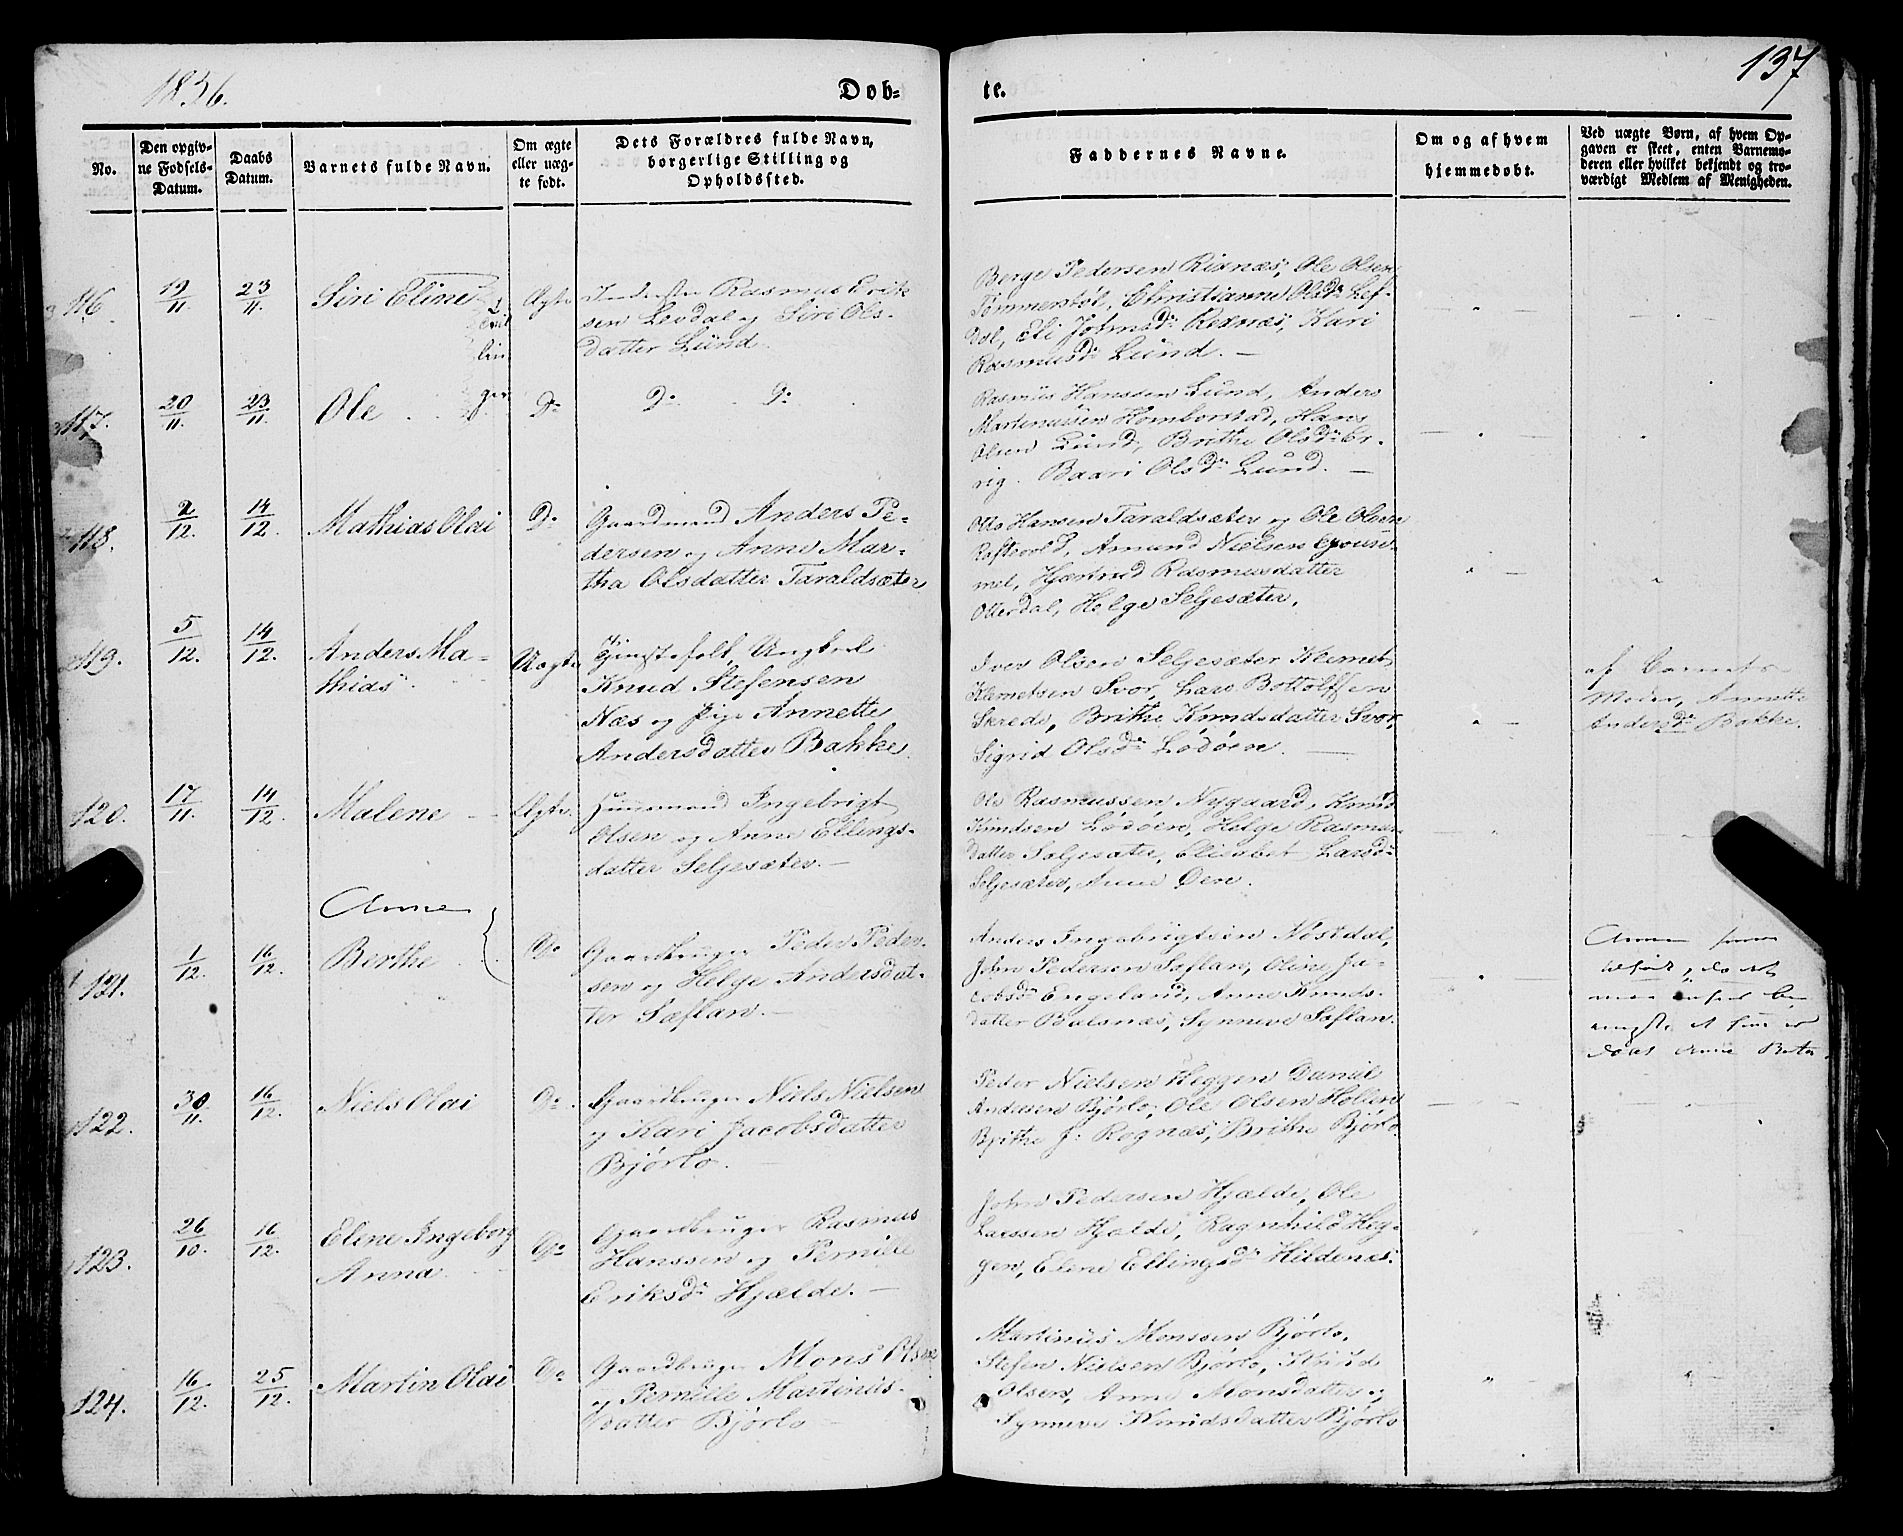 1836.
Dob=
te.
137
No.
Den opgiv-
ne Fødsels-
Datum.
Daabs
Datum.
Barnets fulde Navn.
Om ægte
eller uæg-
te født.
Dets Forældres fulde Navn,
borgerlige Stilling og
Opholdssted.
Faddernes Navne.
Om og af hvem
hjemmedøbt.
Ved uægte Børn, af hvem Op-
gaven er skeet, enten Barnemo-
deren eller hvilket bekjendt og tro-
værdigt Medlem af Menigheden.
116.
19/11
23/11.
Siri Eline
Ægte
Rasmus Erik
sen Levdal og Siri Ols-
datter Lund.
Børge Pedersen Rixnæs, Ole Olsen
Tømmerstøl, Christianne Olsdr Lef-
dal, Eli Johnsdr Rexnæs, Kari
Rasmusdr Lund. —
117.
20/11.
23/11.
Ole
Do
Do Do
Rasmus Hanssen Lund, Anders
Martinussen Homborstad, Hans
Olsen Lund, Brithe Olsdr Er-
vig. Baari Olsdr Lund. —
118.
2/12.
14/12.
Mathias Olai
Do
Gaardmand Anders Pe-
dersen og Anne Mar-
tha Olsdatter Taraldsæter
Otto Hansen Taraldsæter og Ole Olsen
Raftevold, Amund Nielsen
mel, Rasmusdatter
Otterdal, Helge Seljesæter.
119.
5/12.
14/12.
Anders Ma-
thias
Uægte
Tjenestefolk, Ungkarl
Knud Stefensen
Næs og Pige Annette
Andersdatter Bakke.
Iver Olsen Seljesæter Klemet
Klemetsen Svor, Lars Bottolfsen
Skrede, Brithe Knudsdatter Svor,
Sigrid Olsdr Lødøen.
af Barnets
Moder, Annette
Andersdr Bakke.
120.
17/11.
14/12.
Malene
Ægte
Huusmand Ingebrigt
Olsen og Anne Ellings-
datter Seljesæter. —
Ole Rasmussen Nygaard, Knud
Knudsen Lødøen, Helge Rasmus-
datter Seljesæter, Elisabet Larsdr
Seljesæter, Anne Øen.
121.
1/12.
16/12.
Anne
Berthe
Do
Gaardbruger Peder Peder-
sen og Helge Andersdat-
ter Sæflan. —
Anders Ingebrigtsen Nøstdal,
John Pedersen Sæflan, Oline Ja-
cobsdr Engeland, Anne Knuds-
datter Balsnæs, Synneve Sæflan.
Anne
122.
30/11.
16/12.
Niels Olai
Do
Gaardbruger Niels Nielsen
og Kari Jacobsdatter
Bjørlo.
Peder Nielsen Heggen Daniel
Andersen Bjørlo, Ole Olsen Hollen
Brithe J. Rognæs, Brithe Bjørlo.
123.
26/10.
16/12.
Elene Ingeborg
Anna.
Do
Gaardbruger Rasmus
Hanssen og Pernille
Eriksdr Hjælde. —
John Pedersen Hjælde, Ole
Larssen Hjelde, Ragnhild Heg-
gen, Elene Ellingsdr Hildenes.
124.
16/12.
25/12.
Martin Olai
Do
Gaardbruger Mons Olsen
og Pernille Martinus-
datter Bjørlo
Martinus Monssen Bjørlo,
Stefen Nielsen Bjørlo,
Olsen, Anne Monsdatter og
Synneve Knudsdatter Bjørlo